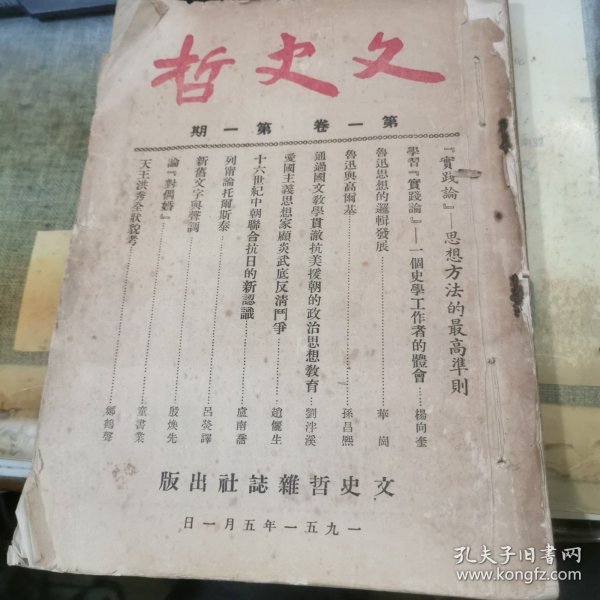 文史哲
第一卷 第一期
『實踐論』——思想方法的最高準則
學習『實踐論』——一個史學工作者的體會……楊向奎
魯迅思想的邏輯發展……華崗
魯迅與高爾基……孫昌熙
通過國文教學貫澈抗美援朝的政治思想教育……劉泮溪
愛國主義思想家顧炎武底反清鬥爭……趙儷生
十六世紀中朝聯合抗日的新認識……盧南喬
列甯論托爾斯泰……呂熒譯
新舊文字與聲調……殷煥先
論『對偶婚』……童書業
天王洪秀全狀貌考……鄭鶴聲
文史哲雜誌社出版
一九五一年五月一日
孔夫子旧书网
www.kongfz.com